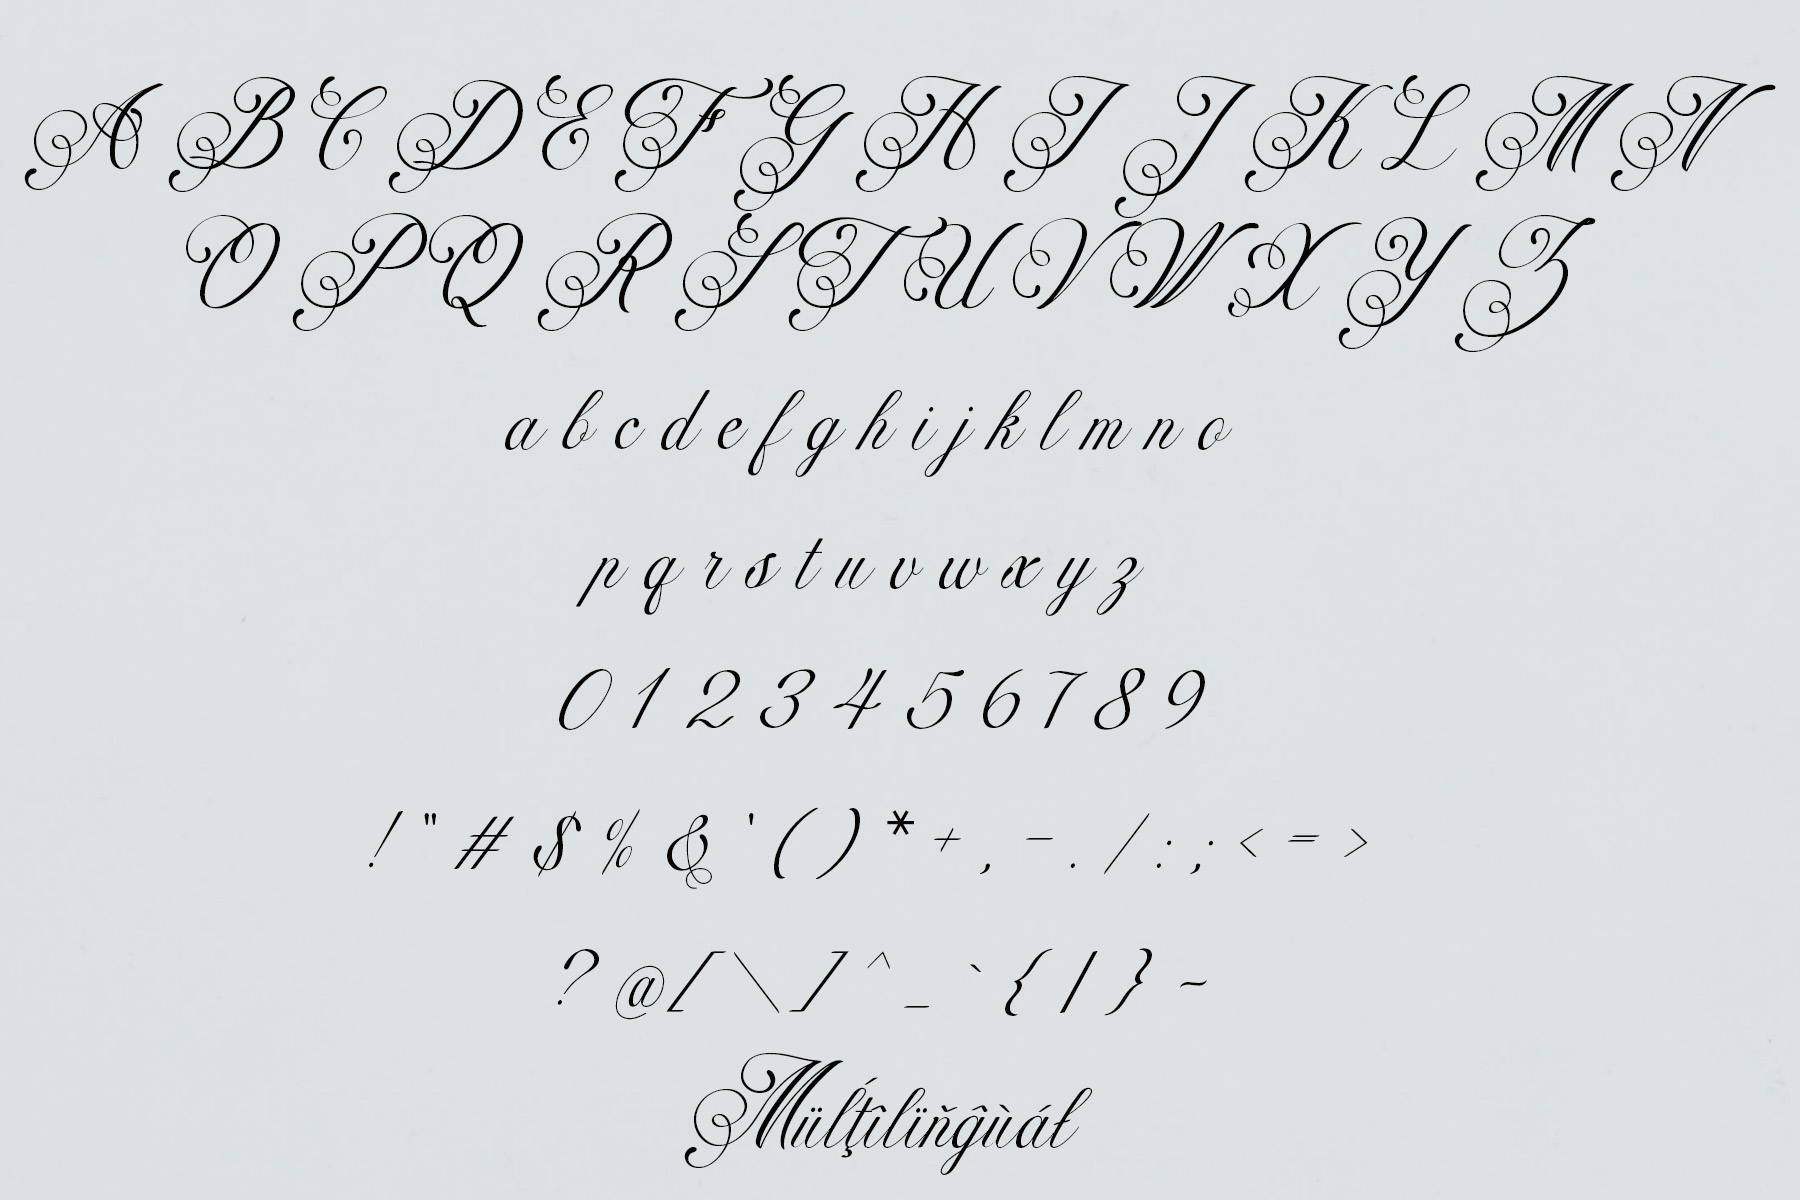 A B C D E F G H I J K L M N
O P Q R S T U V W X Y Z
a b c d e f g h i j k l m n o
p q r s t u v w x y z
0 1 2 3 4 5 6 7 8 9
! " # $ % & ' ( ) * + , - . / : ; < = >
? @ [ \ ] ^ _ ` { | } ~
Müĺţîlïňĝùáł